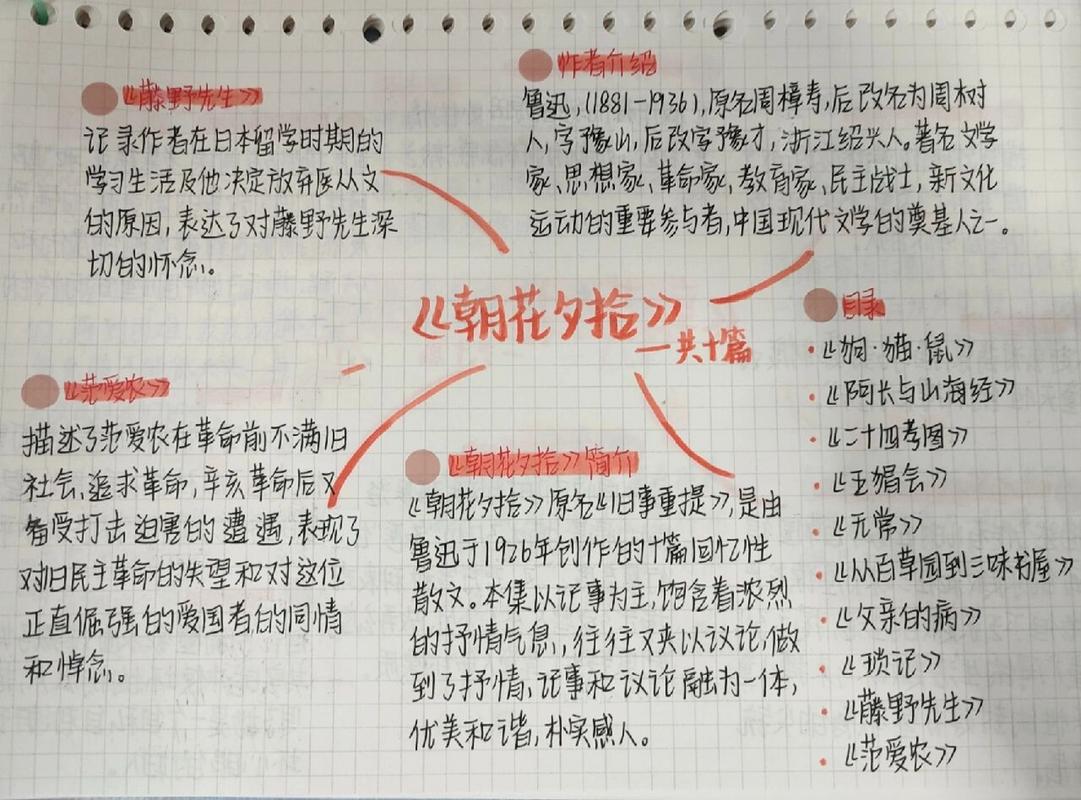 《朝花夕拾》
—共十篇
《藤野先生》
记录作者在日本留学时期的
学习生活及他决定放弃医从文
的原因,表达了对藤野先生深
切的怀念。
作者介绍
鲁迅,(1881-1936),原名周樟寿,后改名为周树
人,字豫山,后改字豫才,浙江绍兴人。著名文学
家、思想家、革命家、教育家、民主战士,新文化
运动的重要参与者,中国现代文学的奠基人之一。
《范爱农》
描述了范爱农在革命前不满旧
社会、追求革命,辛亥革命后又
备受打击迫害的遭遇,表现了
对旧民主革命的失望和对这位
正直倔强的爱国者的同情
和悼念。
《朝花夕拾》简介
《朝花夕拾》原名《旧事重提》,是由
鲁迅于1926年创作的十篇回忆性
散文。本集以记事为主,饱含着浓烈
的抒情气息,往往又夹以议论,做
到了抒情、记事和议论融为一体,
优美和谐,朴实感人。
目录
·《狗·猫·鼠》
·《阿长与山海经》
·《二十四孝图》
·《五猖会》
·《无常》
·《从百草园到三味书屋》
·《父亲的病》
·《琐记》
·《藤野先生》
·《范爱农》